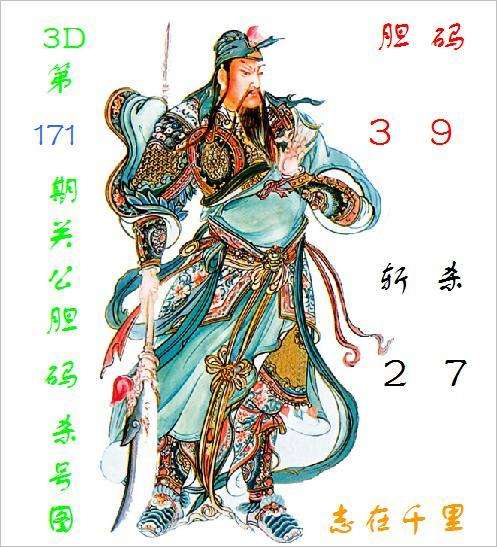 3D
第
171
期
关
公
胆
码
杀
号
图
胆 码
3 9
斩 杀
2 7
志在千里